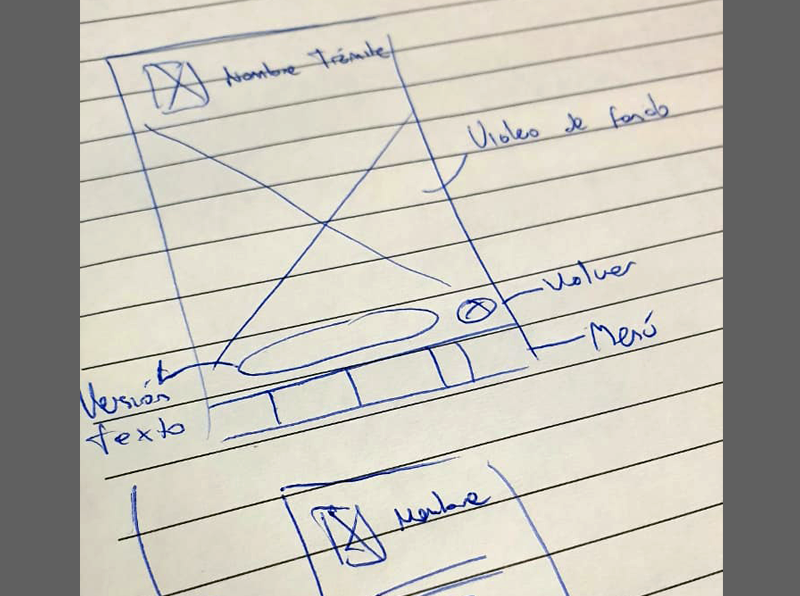 Nombre Trámite
Video de fondo
Volver
Menú
Versión
texto
Nombre